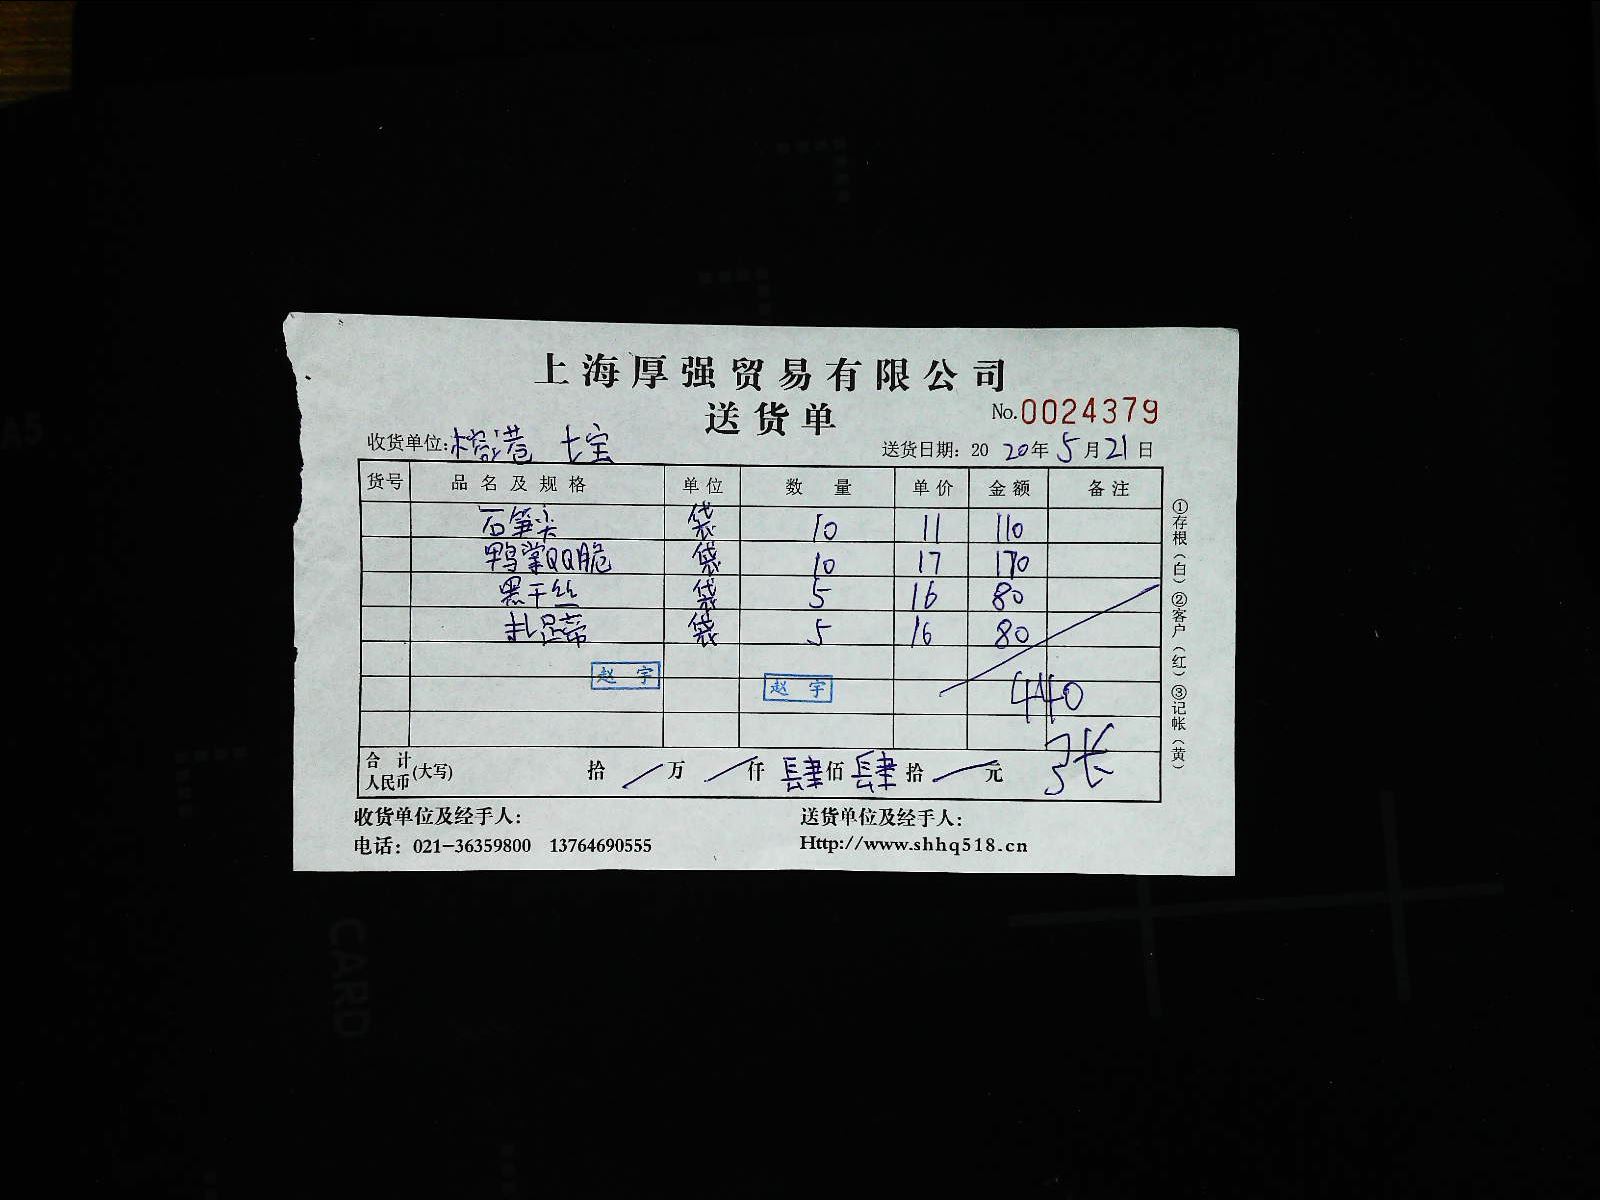 上海厚强贸易有限公司
送货单
No.0024379
收货单位: 榕港 七宝
送货日期: 2020年5月21日
货号 品名及规格 单位 数量 单价 金额 备注
石笋尖 袋 10 11 110
鸭掌QQ脆 袋 10 17 170
黑干丝 袋 5 16 80
扎足蒂 袋 5 16 80
赵宇
赵宇
440
合计人民币(大写) 拾 / 万 / 仟 肆 佰 肆 拾 / 元
张
收货单位及经手人:
送货单位及经手人:
电话: 021-36359800 13764690555
Http://www.shhq518.cn
①存根(白)②客户(红)③记帐(黄)
CARD
A5